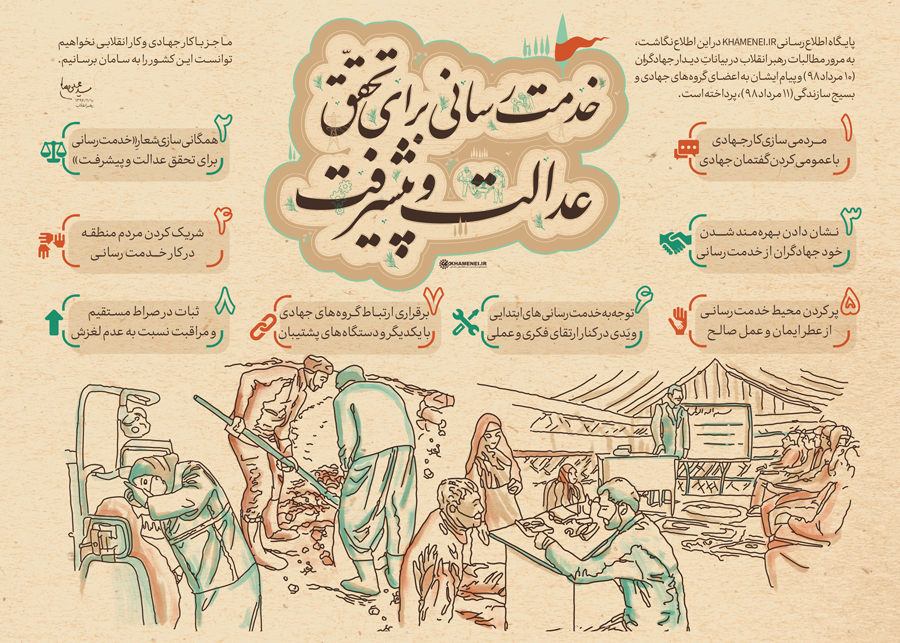 پایگاه اطلاع‌رسانی KHAMENEI.IR در این اطلاع‌نگاشت،
به مرور مطالبات رهبر انقلاب در بیاناتِ دیدار جهادگران
(۱۰ مرداد ۹۸) و پیام ایشان به اعضای گروه‌های جهادی و
بسیج سازندگی (۱۱ مرداد ۹۸)، پرداخته است.
خدمت‌رسانی برای تحقّق
عدالت و پیشرفت
KHAMENEI.IR
ما جز با کار جهادی و کار انقلابی نخواهیم
توانست این کشور را به سامان برسانیم.
۱
مـردمی سازی کار جـهادی
با عمومی کردن گفتمان جهادی
۲
همگانی سازی شعار «خدمت‌رسانی
برای تحقق عدالت و پیشرفت»
۳
نـشان دادن بـهره مـند شـدن
خود جهادگران از خدمت رسانی
۴
شریک کردن مردم منطقـه
در کار خـدمت رسانـی
۵
پر کردن محیط خدمت رسانـی
از عطر ایمـان و عمل صالـح
۶
توجه به خدمت رسانی های ابتدایی
و یَدی در کنار ارتقای فکری و عملی
۷
برقراری ارتبـاط گـروه های جهادی
با یکدیگر و دستگاه های پشتیبان
۸
ثبات در صراط مسـتقیم
و مراقبت نسبت به عدم لغزش